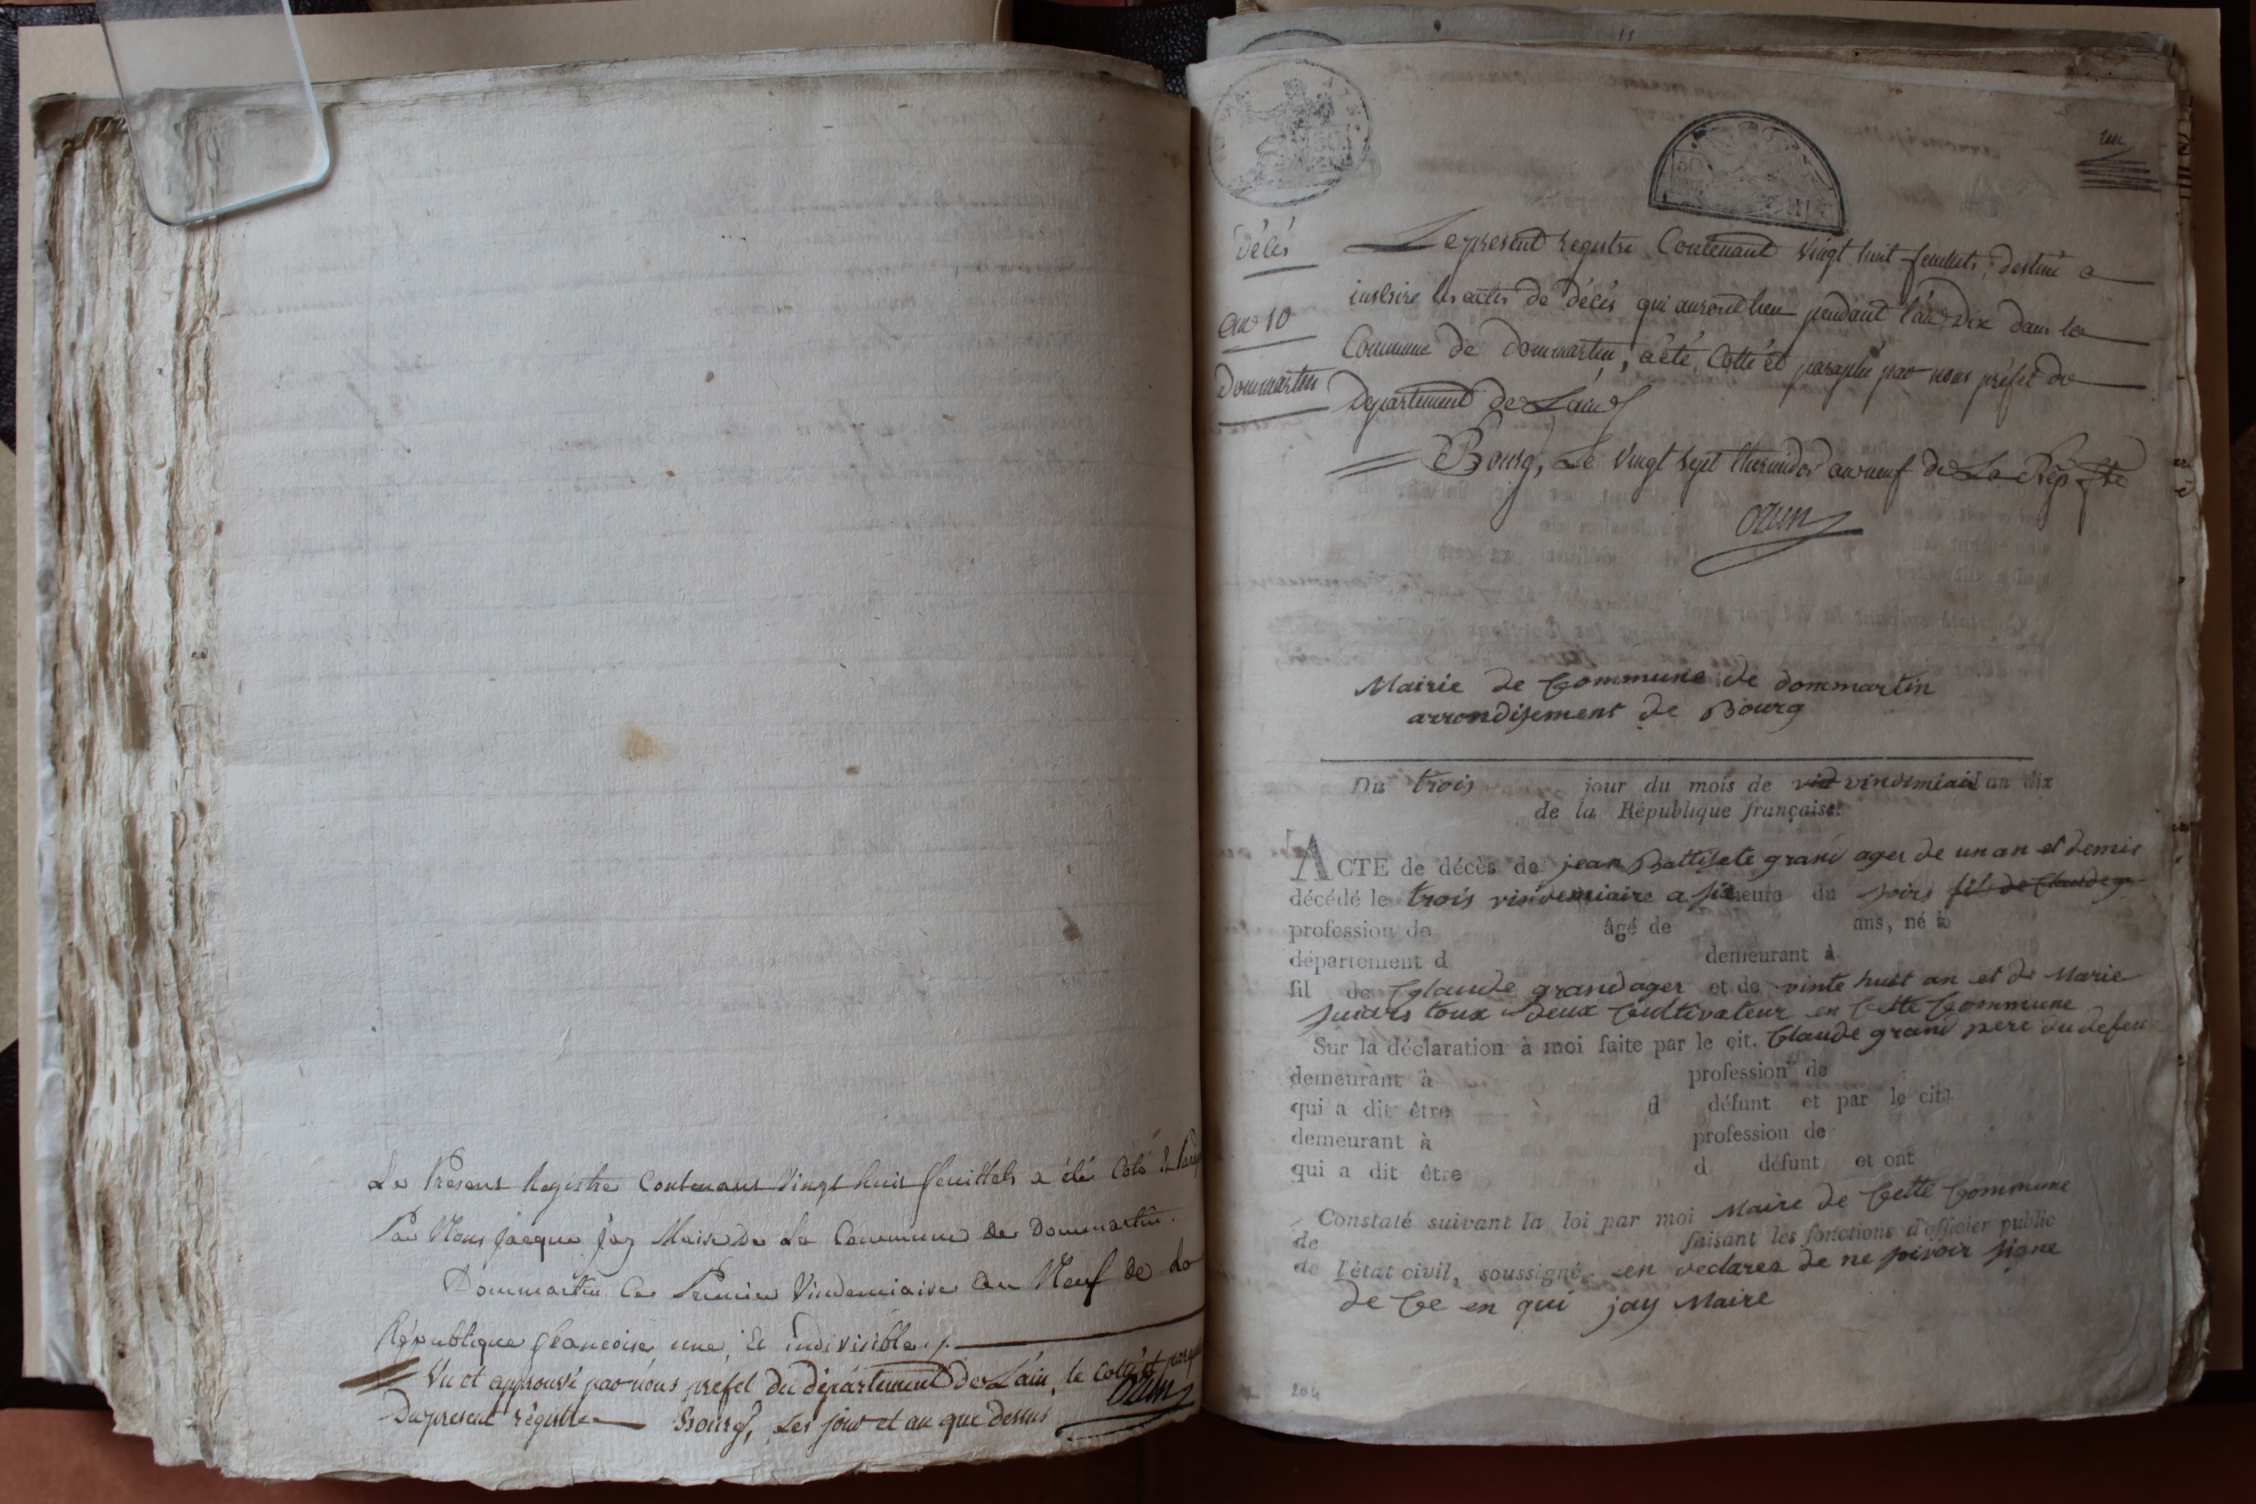 Le Présent Registre Contenant Vingt huit feuillets a été Coté &
Par Nous Jacque Jay Maire De La Commune De Dommartin.
Dommartin Ce Premier Vindemiaire an Neuf de La
République francoise une, Et indivisible ./.
Vu et approuvé par nous préfet Du département De L'ain, le Coté et
Du present régistre Bourg, Les jour et an que dessus
Ozun
un
Décès
an 10
Dommartin
Le present Registre, Contenant vingt huit feuillets, destiné a
inscrire les actes de décès qui auront lieu pendant l'an dix dans la
Commune de Dommartin, a été Cotté et paraphé par nous préfet du
Département de L'ain
Bourg, Le vingt sept thermidor an neuf de La Rép. fse
Ozun
Mairie de Commune de dommartin
arrondisement de Bourg
Du trois jour du mois de vindemiair an dix
de la République française.
ACTE de décès de jean Battiste grand ager de un an et demis
décédé le trois vindemiaire a six heure du soirs fils de Claude
profession de âgé de ans, né à
département d demeurant à
fil de Claude grand ager et de vinte huit an et de Marie
toux deux Cultivateur en Cette Commune
Sur la déclaration à moi faite par le cit. Claude grand pere du defeu
demeurant à profession de
qui a dit être d défunt et par le cit.
demeurant à profession de
qui a dit être d défunt et ont
Constaté suivant la loi par moi Maire de Cette Commune
de faisant les fonctions d'officier public
de l'état civil, soussigné en declarea de ne savoir signe
de Ce en qui jay Maire
204